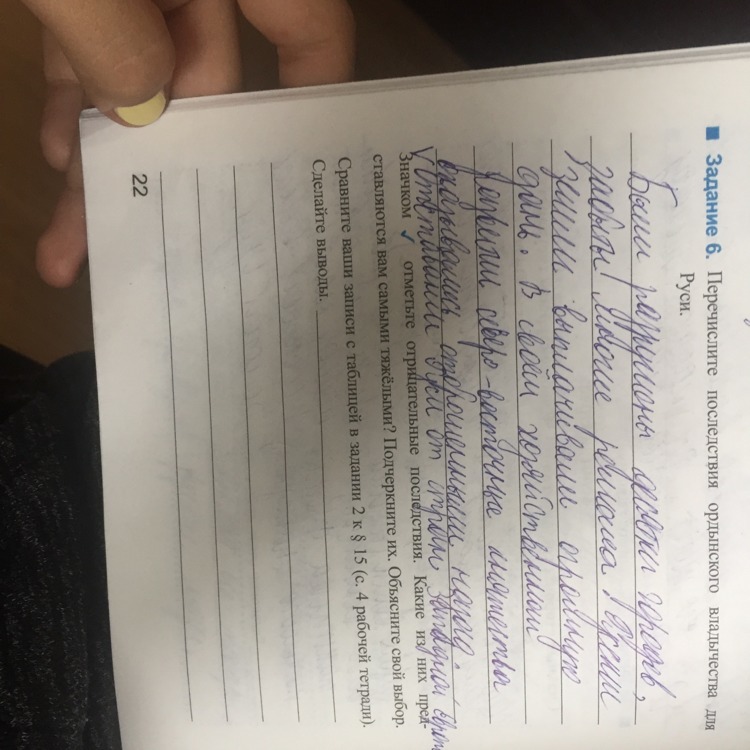 ■ Задание 6. Перечислите последствия ордынского владычества для
Руси.
Были разрушены десятки городов,
забыты многие ремёсла. Русские
земли выплачивали огромную
дань. В своём хозяйственном
развитии северо-восточные княжества
оказывались отброшенными назад
V Отстали от стран Западной
Значком ✓ отметьте отрицательные последствия. Какие из них пред-
ставляются вам самыми тяжёлыми? Подчеркните их. Объясните свой выбор.
Сравните ваши записи с таблицей в задании 2 к § 15 (с. 4 рабочей тетради).
Сделайте выводы.
22